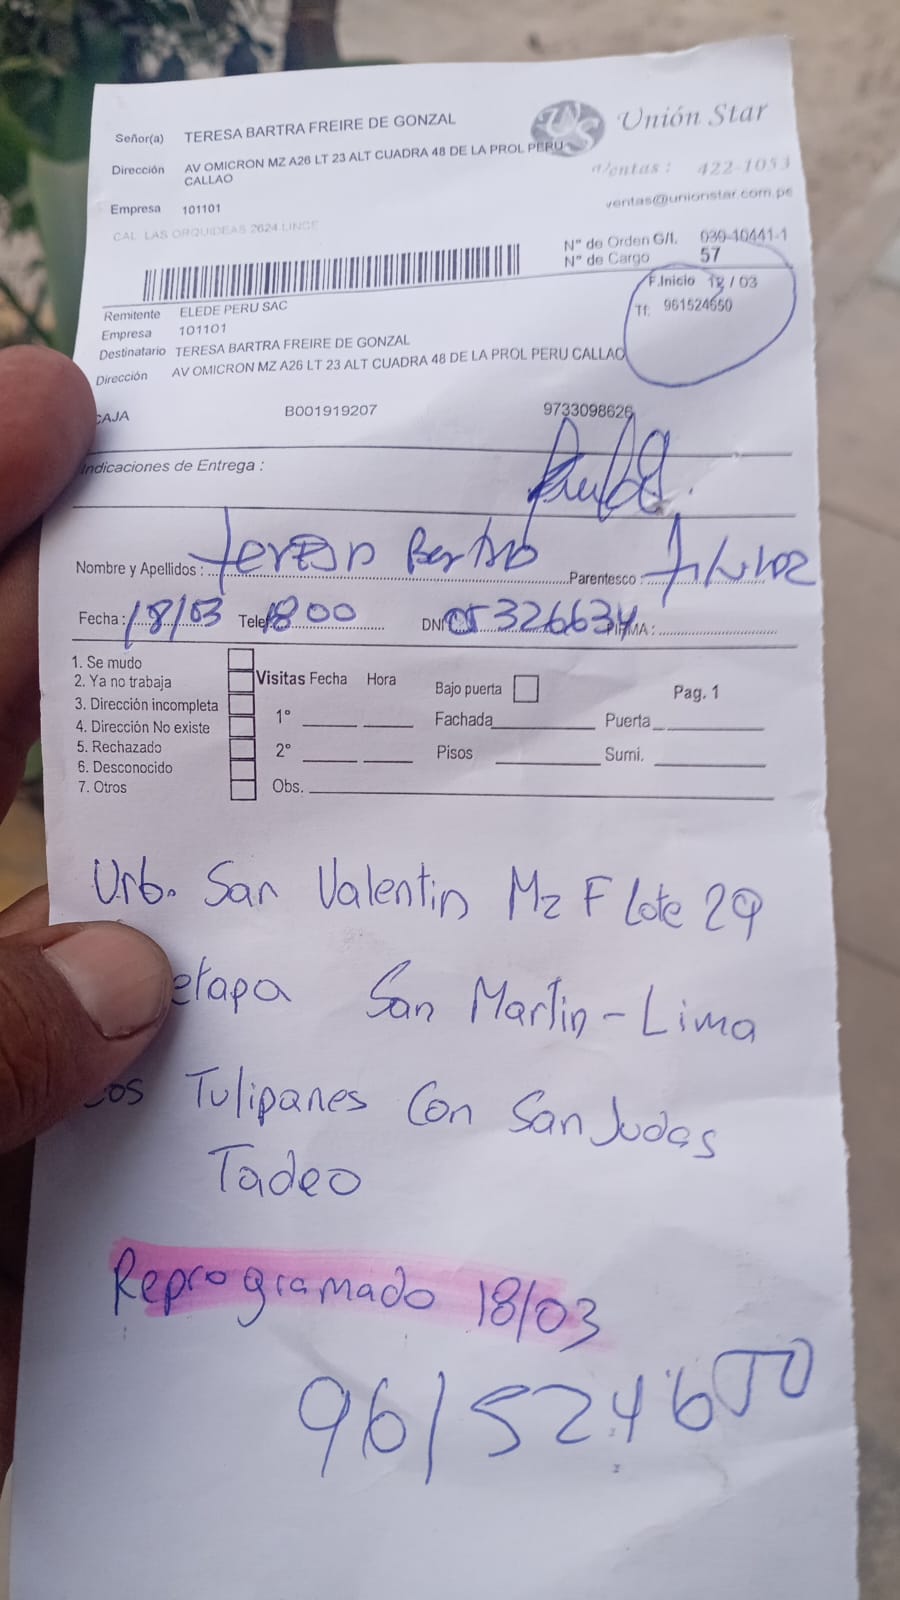 Señor(a) TERESA BARTRA FREIRE DE GONZAL
Unión Star
Dirección AV OMICRON MZ A26 LT 23 ALT CUADRA 48 DE LA PROL PERU
CALLAO
Ventas : 422-1053
Empresa 101101
ventas@unionstar.com.pe
CAL LAS ORQUIDEAS 2624 LINCE
N° de Orden G/I. 039-10441-1
N° de Cargo 57
F.Inicio 18 / 03
Tf: 961524650
Remitente ELEDE PERU SAC
Empresa 101101
Destinatario TERESA BARTRA FREIRE DE GONZAL
Dirección AV OMICRON MZ A26 LT 23 ALT CUADRA 48 DE LA PROL PERU CALLAO
CAJA B001919207 9733098626
Indicaciones de Entrega :
Nombre y Apellidos : Teresa Bartra Parentesco :
Fecha : 18/03 Telef 1800 DNI 05326634 FIRMA :
1. Se mudo
2. Ya no trabaja
3. Dirección incompleta
4. Dirección No existe
5. Rechazado
6. Desconocido
7. Otros
Visitas Fecha Hora Bajo puerta Pag. 1
1° Fachada Puerta
2° Pisos Sumi.
Obs.
Urb. San Valentin Mz F lote 29
etapa San Martin - Lima
Tulipanes Con San Judas
Tadeo
Reprogramado 18/03
961524650